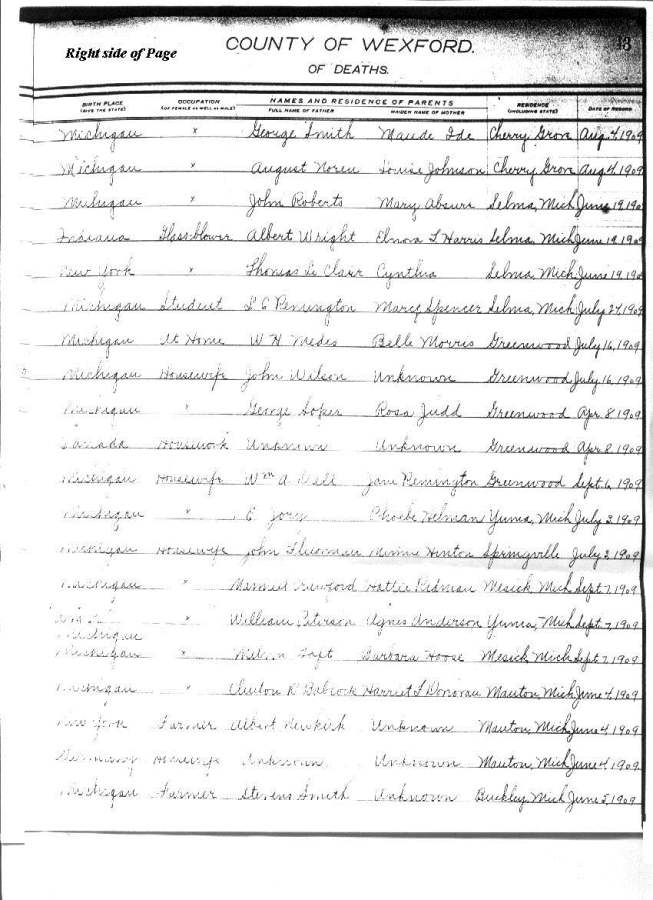 Right side of Page
COUNTY OF WEXFORD.
OF DEATHS.
BIRTH PLACE OCCUPATION NAMES AND RESIDENCE OF PARENTS RESIDENCE DATE OF RECORD
(GIVE THE STATE) (OF FEMALE AS WELL AS MALE) FULL NAME OF FATHER MAIDEN NAME OF MOTHER (INCLUDING STATE)
Michigan x George Smith Maude Ide Cherry Grove Aug 4, 1909
Michigan x August Noren Louise Johnson Cherry Grove Aug 4, 1909
Michigan x John Roberts Mary Selma, Mich June 19, 190
Indiana Glassblower Albert Wright Elnora T Harris Selma, Mich June 19, 190
New York x Thomas Le Clair Cynthia Selma, Mich June 19, 190
Michigan Student L C Penington Spencer Selma, Mich July 27, 1909
Michigan At Home W H Medes Belle Morris Greenwood July 16, 1909
Michigan Housewife John Wilson Unknown Greenwood July 16, 1909
Michigan " George Soper Rosa Judd Greenwood Apr 8 1909
Canada Housework Unknown Unknown Greenwood Apr 8 1909
Michigan Housewife Wm A Dell Jane Remington Greenwood Sept 6, 1909
Michigan " Phoebe Helman Yuma, Mich July 3, 1909
Michigan Housewife John Minnie Hinton Springville July 3, 1909
Michigan " Hattie Redman Mesick Mich Sept 7, 1909
" William Peterson Agnes Anderson Yuma, Mich Sept 7, 1909
Michigan
Michigan " Taft Barbara Hoose Mesick Mich Sept 7, 1909
Michigan " Clinton R Babcock Harriet L Donovan Manton, Mich June 4, 1909
New York Farmer Albert Newkirk Unknown Manton, Mich June 4, 1909
Germany Housewife Unknown Unknown Manton, Mich June 4, 1909
Michigan Farmer Stevens Smith Unknown Buckley, Mich June 5, 1909